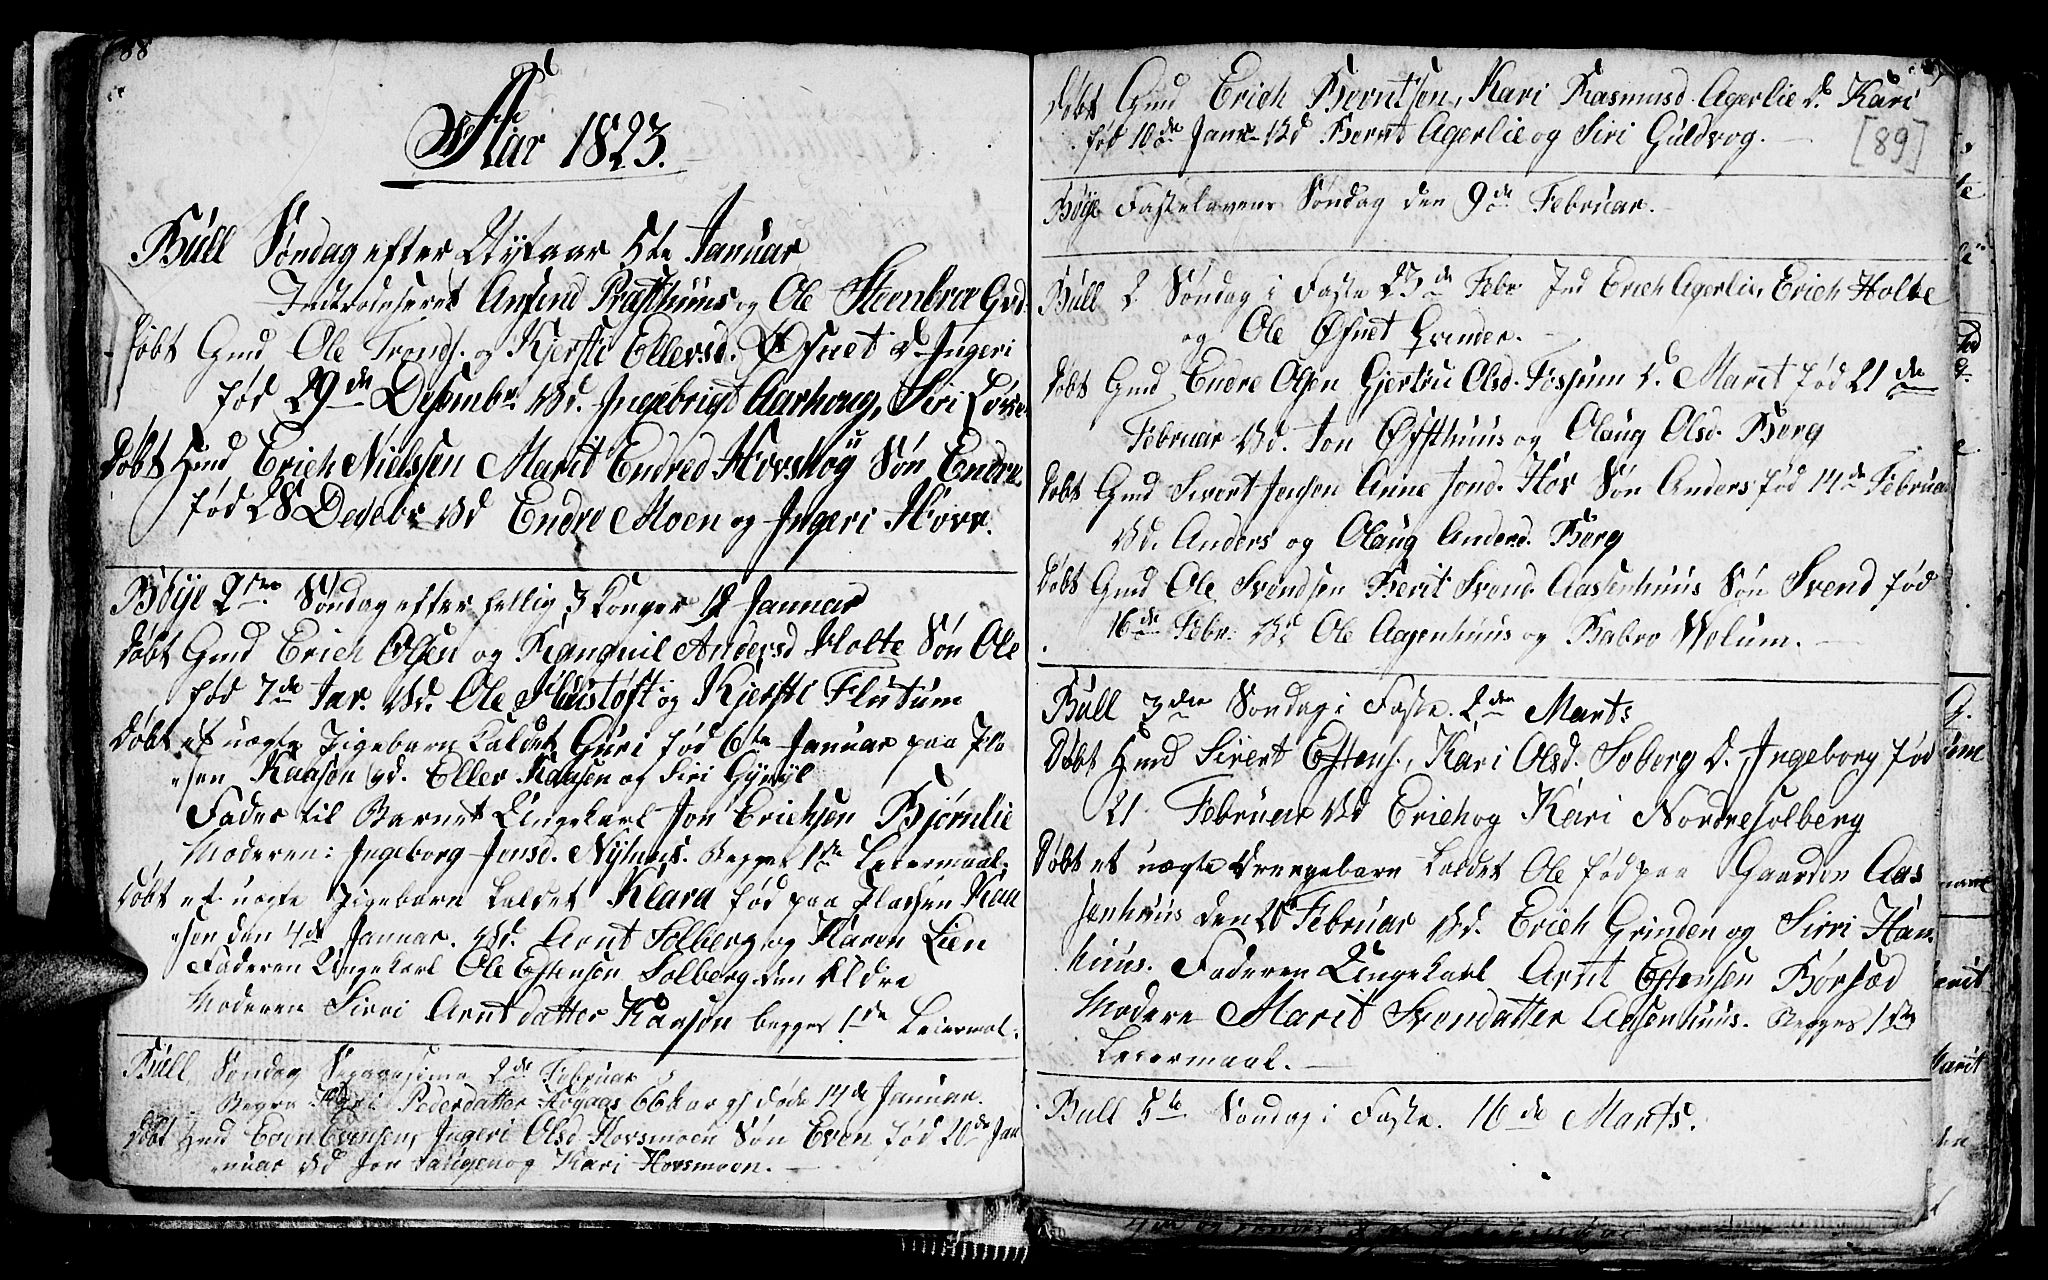 88
Aar 1823.
Büll Søndag efter Nÿtaar 5te Januar
Introduseret Amund Præsthuus og Ole Steenbroe Gvd.
Døbt Gmd Ole Tronds. og Kjersti Ellersd. Øfnet D. Ingeri
fød 29de Desembr. Vd. Ingebrigt Aarhoug, Siri
Døbt Hmd Erich Nielssen Marit Endresd Hovshoÿ Søn Endre
fød 28 Desebr Vd Endre Moen og Ingeri Hovr.
Böÿe Søndag efter hellig 3 Konger 12 Januar
Døbt Gmd Erich Olsen og Andersd Holte Søn Ole
fød 7de Jar. Vd. Ole og Kjersti Flutum
Døbt et uægte Pigebarn kaldet Guri fød 6te Januar paa Pla
sen Kaasen Vd. Eller Kaasen og Siri
Fader til Barnet Ungekarl Jon Erichsen Bjørnlie
Moderen: Ingeborg Jonsd. Nÿhuus. Begges 1ste Leiermaal.
Døbt et uegte Pigebarn kaldet Klara fød paa Pladsen Kaa
sen den 4de Januar. Vd. Arnt Solberg og Karen Lien
Faderen Ungekarl Ole Estensen Solberg den Eldre
Moderen Sirri Arntdatter Kaasen begges 1de Leiermal.
Büll Søndag 2de Februar
Begra Pedersdatter 66 Aar gl døde 14de Januar.
Døbt Hmd Even Evensen, Ingeri Olsd Hovsmoen Søn Even fød 20de Jan
nuar Vd Jon og Kari Hovsmoen.
Døbt Gmd Erich Berntsen, Kari Rasmusd Agerlie D. Kari
fød 10de Janr Vd Bernt Agerlie og Siri Guldvog.
[89]
Böÿe Fastelavens Søndag den 9de Februar.
Büll 2 Søndag i Faste 23de Febr Ind Erich Agerlie, Erich Holte
og Ole Øfnet Qvinder.
Døbt Gmd Endre Olsen Gjertru Olsd. Fossum D. Marit fød 21de
Februar Vd. Jon Øfsthuus og Olaug Olsd. Berg
Døbt Gmd Sivert Jensen Anne Jonsd. Hov Søn Anders fød 14de Februar
Vd. Anders og Olaug Andersd. Berg
Døbt Gmd Ole Svendsen Berit Svend. Aasenhuus Søn Svend fød
16de Febr. Vd Ole Aasenhuus og Babro Wolum.
Büll 3die Søndag i Faste. 2den Marts
Døbt Hmd Sivert Estens., Kari Olsd. Soberg D. Ingeborg fød
21 Februar Vd Erich og Kari Nordresolberg
Døbt et uægte Drengebarn kaldet Ole fød paa Gaarden Aas
senhuus den 20 Februar Vd. Erich Grinden og Sirri Hau
huus. Faderen Ungekarl Arnt Estensen Børsæd
Modere Marit Svendatter Aasenhuus. Begges 1ste
Leiermaal.
Bull 5te Søndag i Faste. 16de Marts.